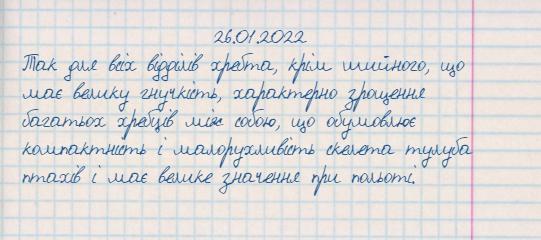 26.01.2022
Так для всіх відділів хребта, крім шийного, що
має велику гнучкість, характерно зрощення
багатьох хребців між собою, що обумовлює
компактність і малорухливість скелета тулуба
птахів і має велике значення при польоті.